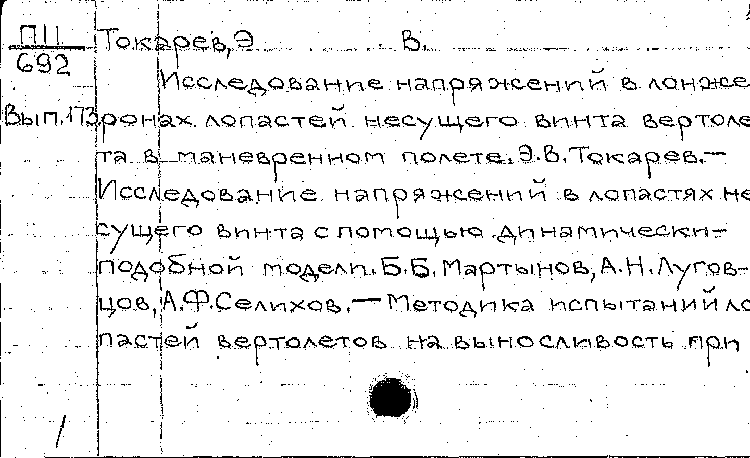 П11 Токарев, Э. В.
692
Исследование напряжений в лонже
Вып.173 ронах лопастей несущего винта вертоле
та в маневренном полете. Э.В. Токарев.—
Исследование напряжений в лопастях не
сущего винта с помощью динамически-
подобной модели. Б.Б. Мартынов, А.Н. Лугов-
цов, А.Ф. Селихов.— Методика испытаний ло
пастей вертолетов на выносливость при